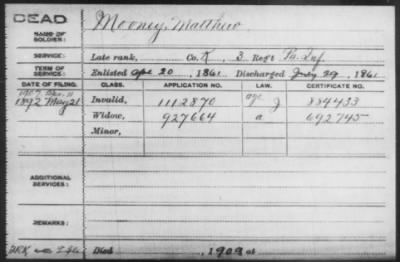 DEAD
NAME OF SOLDIER: Mooney, Matthew
SERVICE: Late rank, Co. K, 3 Reg't Pa. Inf.
TERM OF SERVICE: Enlisted Apr. 20, 1861 Discharged July 29, 1861
DATE OF FILING. CLASS. APPLICATION NO. LAW. CERTIFICATE NO.
1907
1892 May 21 Invalid, 1112870 J 884433
Widow, 927664 a 692745
Minor,
ADDITIONAL SERVICES:
REMARKS:
Died , 1909 at